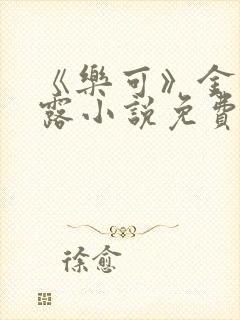 《樂可》金
露小說免費
徐愈